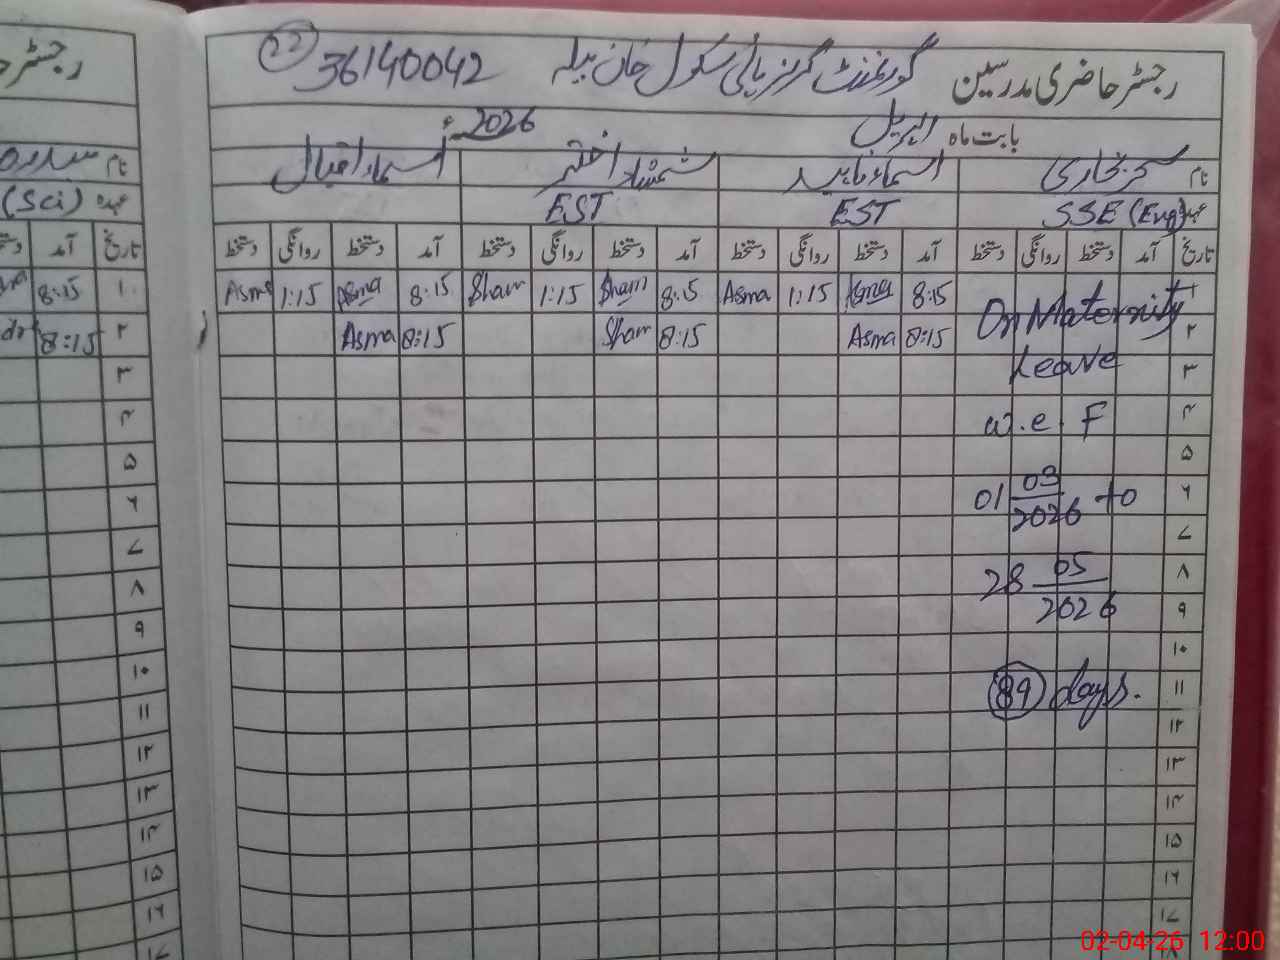 رجسٹر حاضری مدرسین گورنمنٹ گرلز ہائی سکول خان بیلہ 36140042 (22)
بابت ماہ اپریل 2026ء
نام سحر بخاری اسماء ناہید شمشاد اختر اسماء اقبال
عہدہ SSE (Eng) EST EST
تاریخ آمد دستخط روانگی دستخط آمد دستخط روانگی دستخط آمد دستخط روانگی دستخط آمد دستخط روانگی دستخط
۱ 8:15 Asma 1:15 Asma 8:15 Sham 1:15 Sham 8:15 Asma 1:15 Asma
On Maternity
۲ 8:15 Asma 8:15 Sham 8:15 Asma
۳ Leave
۴ w.e.F
۵
۶ 01 03/2026 to
۷
۸ 28 05/2026
۹
۱۰
۱۱ 89 days.
۱۲
۱۳
۱۴
۱۵
۱۶
۱۷
۱۸
رجسٹر
نام
عہدہ (Sci)
تاریخ آمد
۱ 8:15
۲ 8:15
۳
۴
۵
۶
۷
۸
۹
۱۰
۱۱
۱۲
۱۳
۱۴
۱۵
۱۶
۱۷
02-04-26 12:00